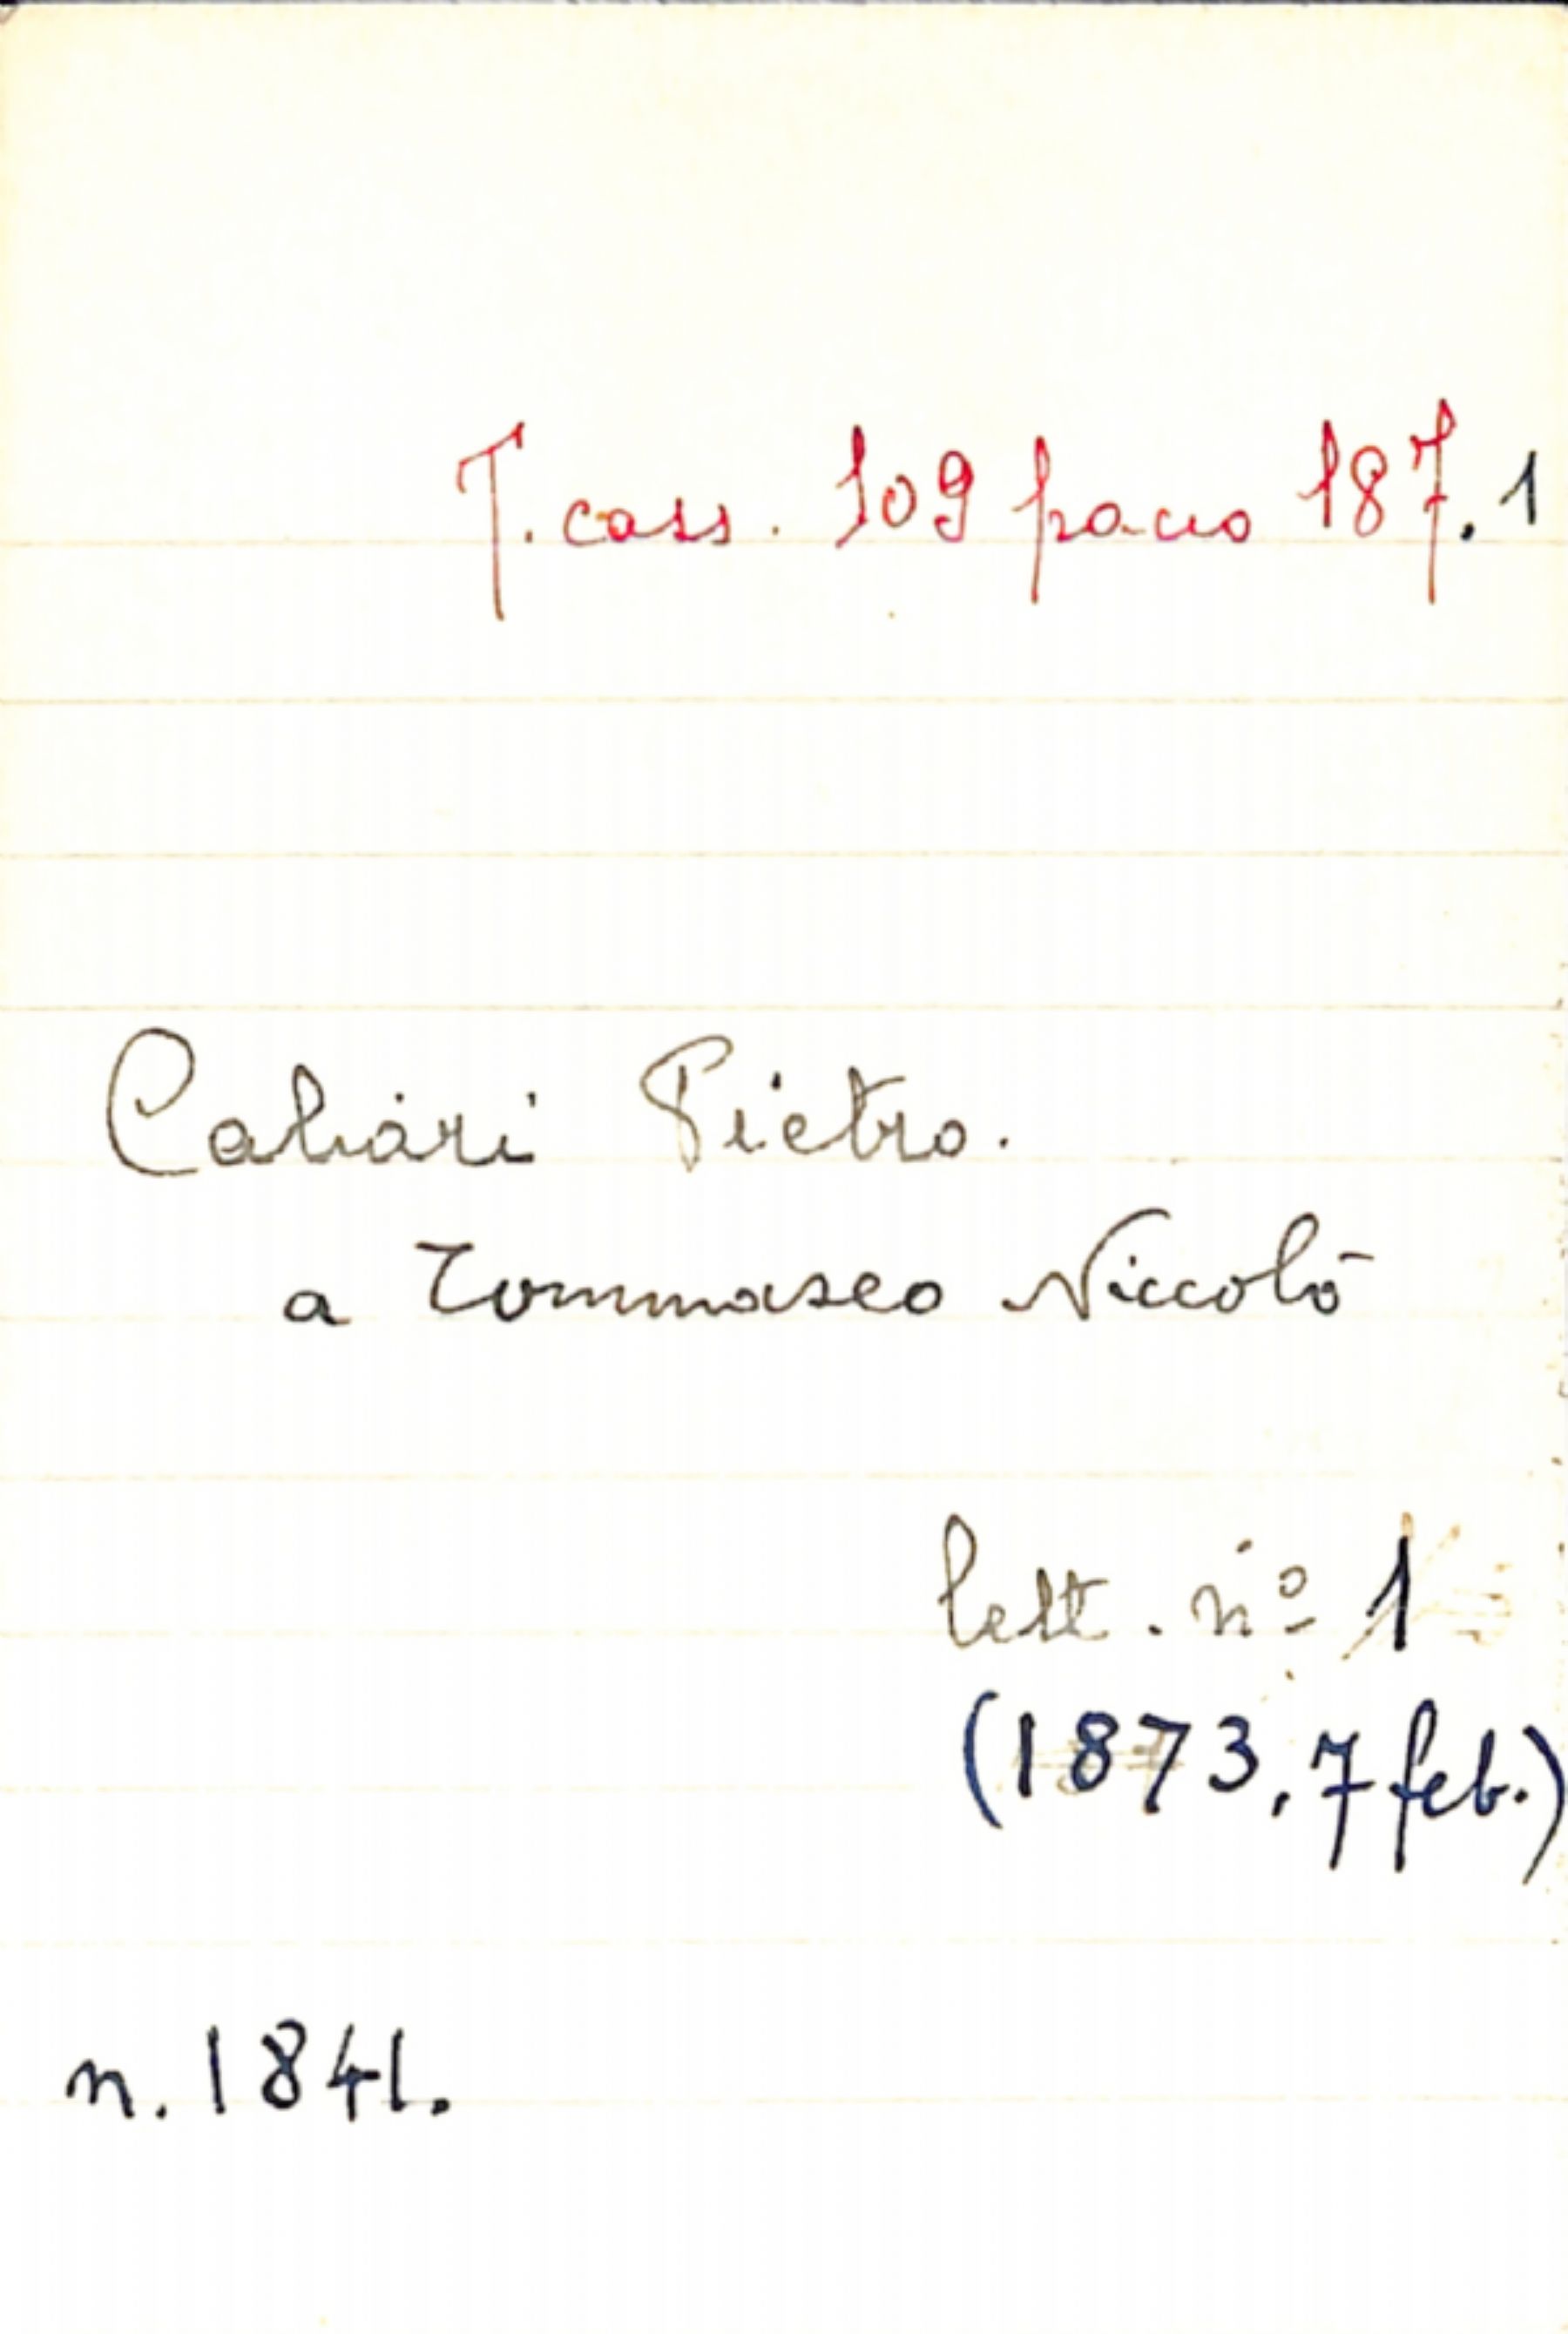 T. cass. 109 pacco 187.1
Caliari Pietro.
a Tommaseo Niccolò
lett. nº 1
(1873, 7 feb.)
n. 1841.